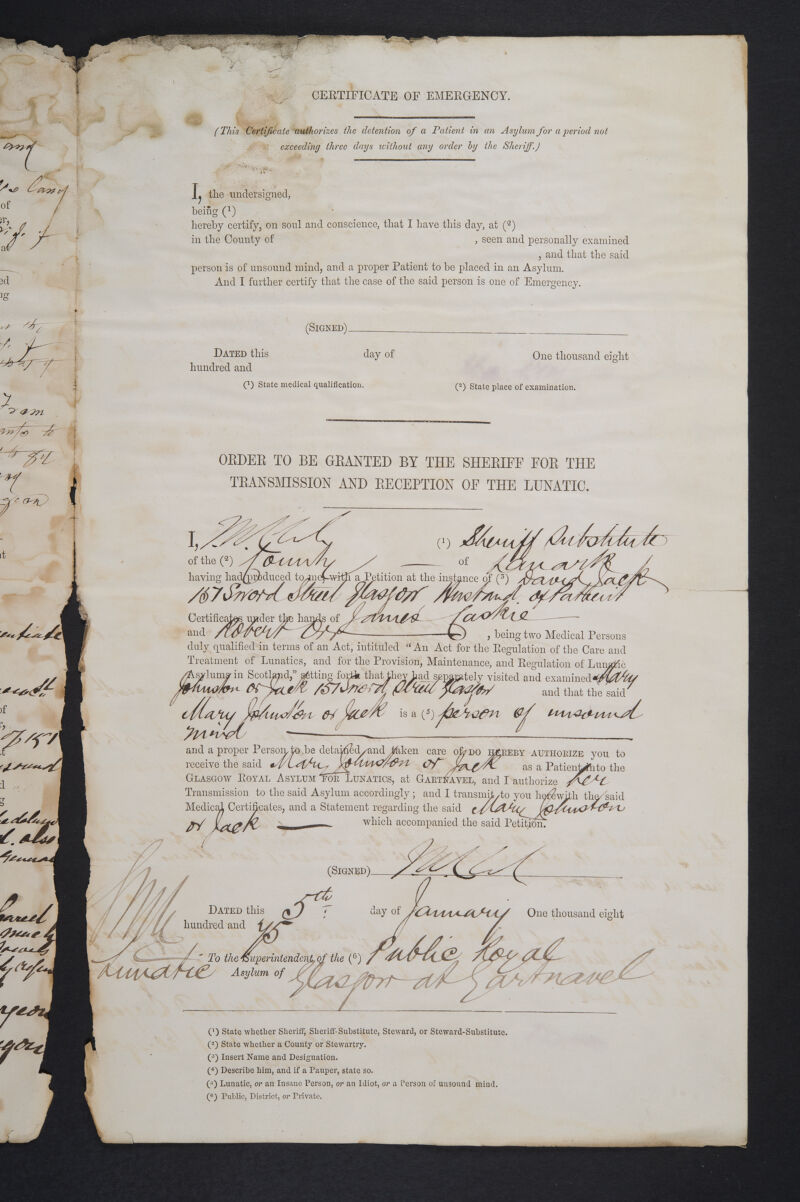 CERTIFICATE OF EMERGENCY.
(This Certificate authorizes the detention of a Patient in an Asylum for a period not
exceeding three days without any order by the Sheriff.)
I, the undersigned,
being (1)
hereby certify, on soul and conscience, that I have this day, at (2)
in the County of , seen and personally examined
, and that the said
person is of unsound mind, and a proper Patient to be placed in an Asylum.
And I further certify that the case of the said person is one of Emergency.
(SIGNED)
DATED this day of One thousand eight
hundred and
(1) State medical qualification. (2) State place of examination.
ORDER TO BE GRANTED BY THE SHERIFF FOR THE
TRANSMISSION AND RECEPTION OF THE LUNATIC.
I, (1) Sheriff Substitute
of the (2) County of Lanark
having had produced to me with a Petition at the instance of (3) David Jack
157 Sword Street Glasgow Husband of Patient
Certificates under the hands of James Caskie
and Robert Orr , being two Medical Persons
duly qualified in terms of an Act, intituled "An Act for the Regulation of the Care and
Treatment of Lunatics, and for the Provision, Maintenance, and Regulation of Lunatic
Asylums in Scotland," setting forth that they had separately visited and examined Mary
Johnston or Jack 157 Sword Street Glasgow and that the said
Mary Johnston or Jack is a (5) person of unsound
mind
and a proper Person to be detained and taken care of, DO HEREBY AUTHORIZE you to
receive the said Mary Johnston or Jack as a Patient into the
GLASGOW ROYAL ASYLUM FOR LUNATICS, at GARTNAVEL, and I authorize her
Transmission to the said Asylum accordingly; and I transmit to you herewith the said
Medical Certificates, and a Statement regarding the said Mary Johnston
or Jack which accompanied the said Petition.
(SIGNED)
DATED this 5th day of January One thousand eight
hundred and 75
To the Superintendent of the (6) Public Royal
Lunatic Asylum of Glasgow at Gartnavel
(1) State whether Sheriff, Sheriff-Substitute, Steward, or Steward-Substitute.
(2) State whether a County or Stewartry.
(3) Insert Name and Designation.
(4) Describe him, and if a Pauper, state so.
(5) Lunatic, or an Insane Person, or an Idiot, or a Person of unsound mind.
(6) Public, District, or Private.